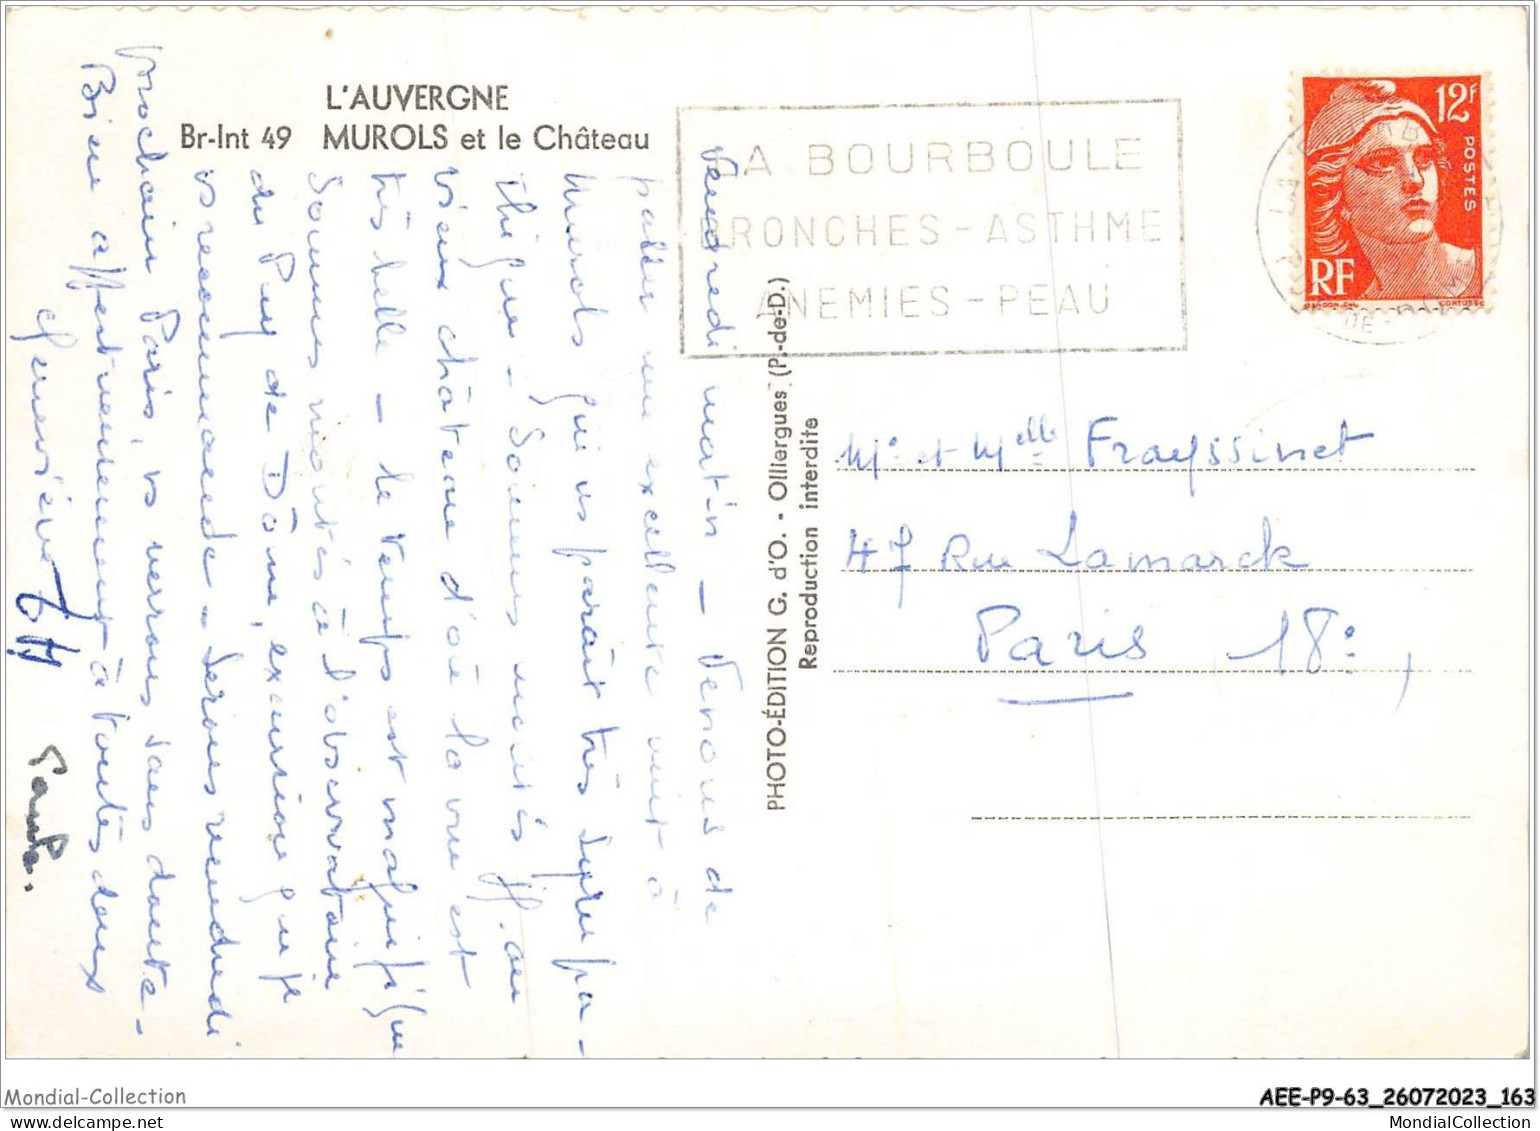 L'AUVERGNE
Br-Int 49 MUROLS et le Château
LA BOURBOULE
BRONCHES - ASTHME
ANEMIES - PEAU
12F
POSTES
RF
PUY DE DOME
PHOTO-ÉDITION G. d'O. - Olliergues (P.-de-D.)
Reproduction interdite
Vendredi matin - Venons de
passer une excellente nuit à
Murols qui ns paraît très sympa-
thique - Sommes montés au
vieux château d'où la vue est
très belle - le temps est magnifique
Sommes montés à l'observatoire
du Puy de Dôme, excursion que je
vs recommande - Serons vendredi
prochain Paris, vs verrons sans doute -
Bien affectueusement à toutes deux
Geneviève
Me et Melle Frayssinet
47 Rue Lamarck
Paris 18e
Mondial-Collection
AEE-P9-63_26072023_163
www.MondialCollection.com